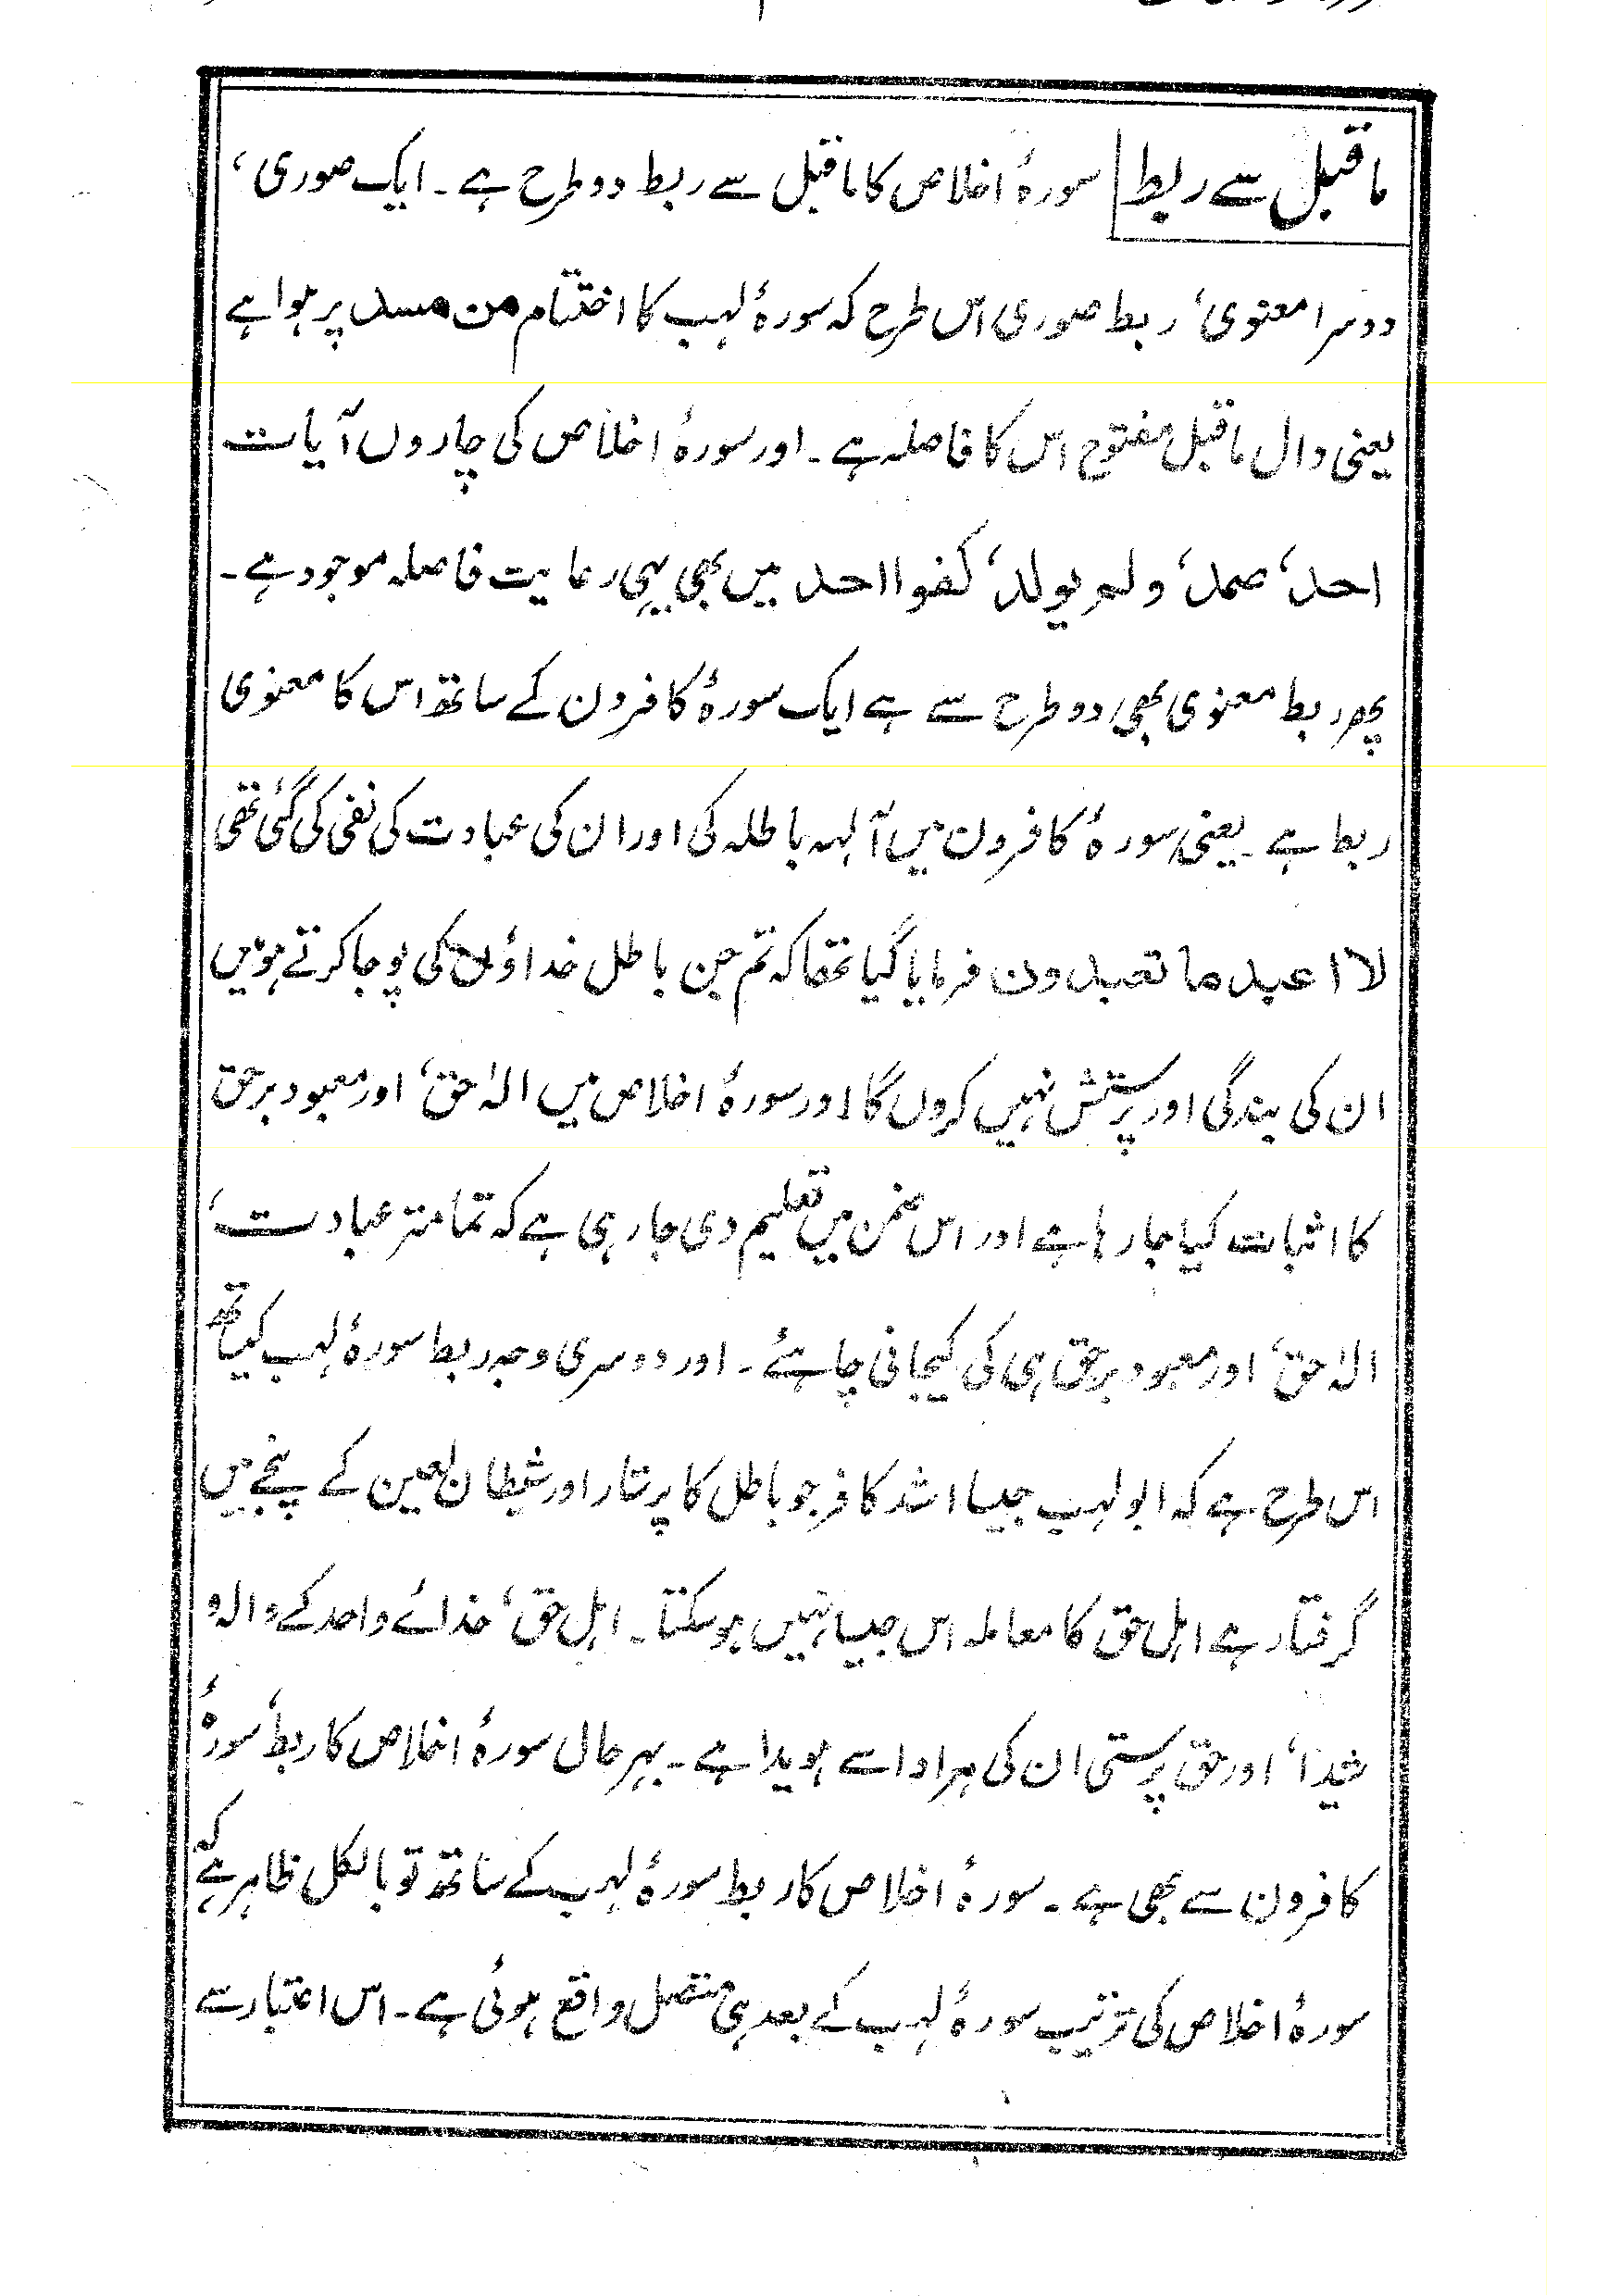 ماقبل سے ربط سورۂ اخلاص کا ماقبل سے ربط دو طرح ہے۔ ایک صوری،
دوسرا معنوی، ربط صوری اس طرح کہ سورۂ لہب کا اختتام من مسد پر ہوا ہے
یعنی دال ماقبل مفتوح اس کا فاصلہ ہے۔ اور سورۂ اخلاص کی چاروں آیات
احد، صمد، ولم یولد، کفوا احد میں بھی یہی رعایت فاصلہ موجود ہے۔
پھر ربط معنوی بھی دو طرح سے ہے ایک سورۂ کافرون کے ساتھ اس کا معنوی
ربط ہے۔ یعنی سورۂ کافرون میں آلہہ باطلہ کی اور ان کی عبادت کی نفی کی گئی تھی
لا اعبد ما تعبدون فرمایا گیا تھا کہ تم جن باطل خداؤں کی پوجا کرتے ہو میں
ان کی بندگی اور پرستش نہیں کروں گا اور سورۂ اخلاص میں الٰہ حق، اور معبود برحق
کا اثبات کیا جا رہا ہے اور اس ضمن میں تعلیم دی جا رہی ہے کہ تمامتر عبادت،
الٰہ حق، اور معبود برحق ہی کی کیجانی چاہئے۔ اور دوسری وجہ ربط سورۂ لہب کیساتھ
اس طرح ہے کہ ابولہب جیسا اشد کافر جو باطل کا پرستار اور شیطان لعین کے پنجے میں
گرفتار ہے اہل حق کا معاملہ اس جیسا نہیں ہو سکتا۔ اہل حق، خدائے واحد کے والہ و
شیدا، اور حق پرستی ان کی ہر ادا سے ہویدا ہے۔ بہرحال سورۂ اخلاص کا ربط سورۂ
کافرون سے بھی ہے۔ سورۂ اخلاص کا ربط سورۂ لہب کے ساتھ تو بالکل ظاہر ہے کہ
سورۂ اخلاص کی ترتیب سورۂ لہب کے بعد ہی متصل واقع ہوئی ہے۔ اس اعتبار سے